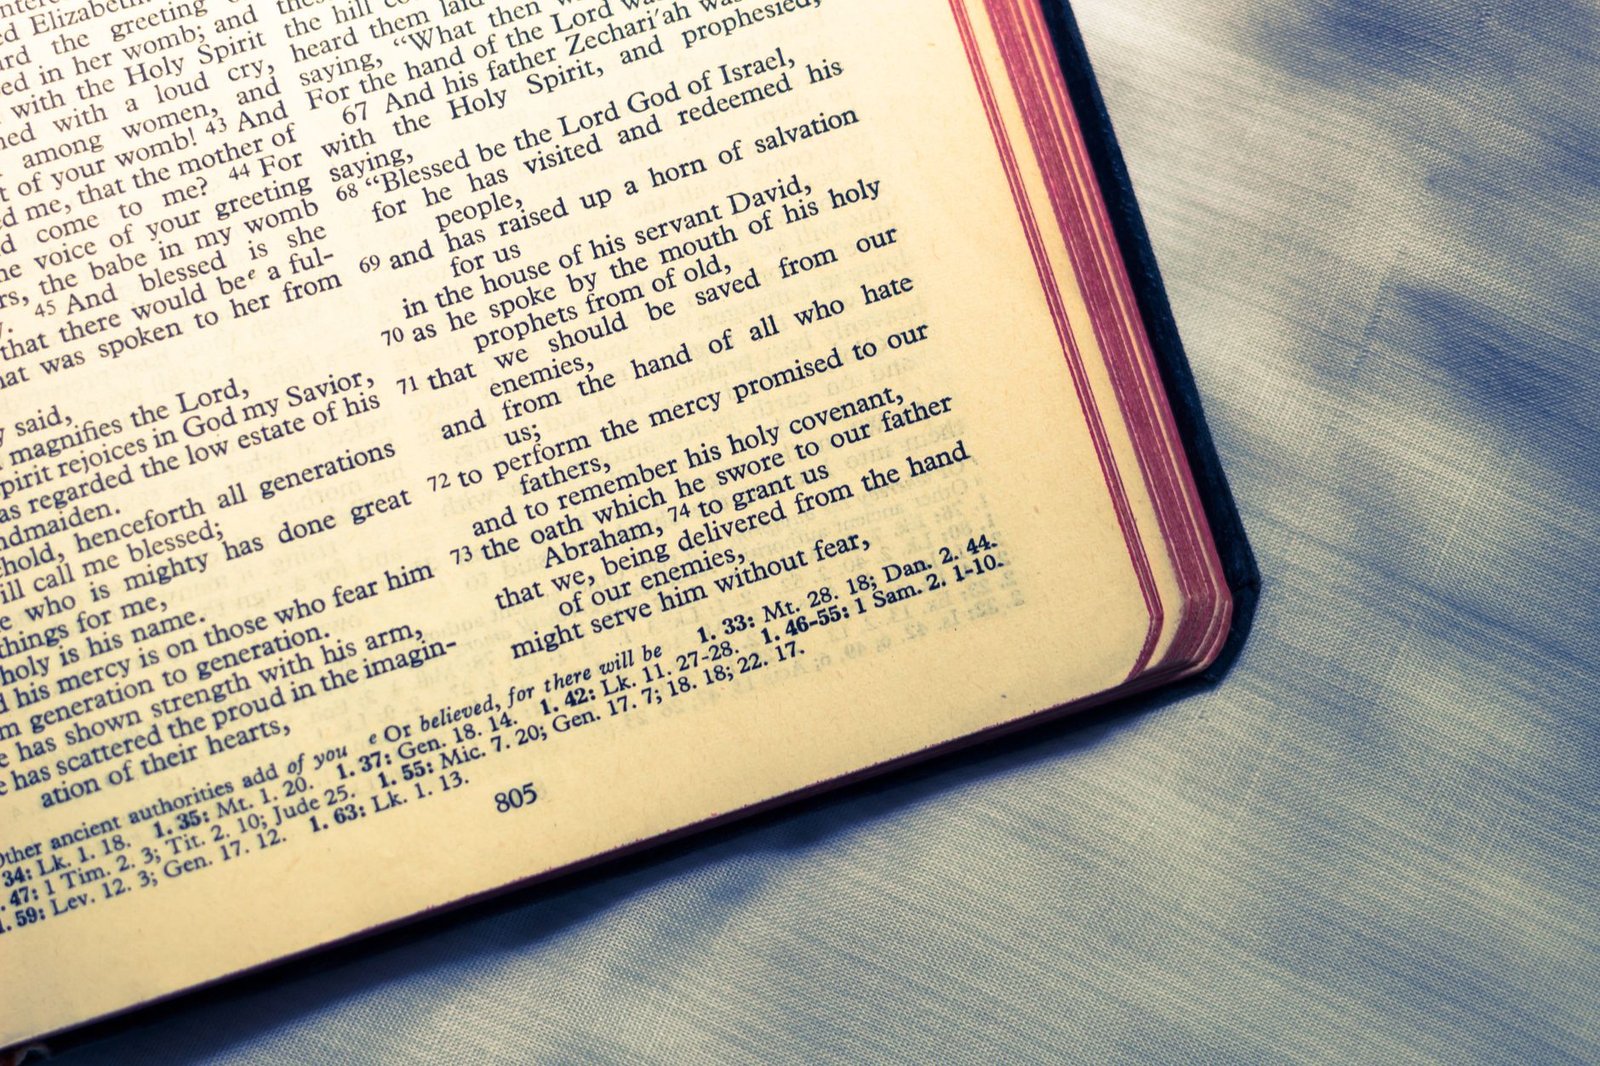 Elizabeth
the greeting
in her womb; and
with the Holy Spirit
with a loud cry,
among women, and
of your womb! 43 And
me, that the mother of
come to me? 44 For
voice of your greeting
the babe in my womb
45 And blessed is she
that there would be e a ful-
was spoken to her from
said,
magnifies the Lord,
rejoices in God my Savior,
regarded the low estate of his
henceforth all generations
call me blessed;
who is mighty has done great
things for me,
holy is his name.
his mercy is on those who fear him
generation to generation.
has shown strength with his arm,
has scattered the proud in the imagin-
ation of their hearts,
the hill
heard them laid
saying, “What then
For the hand of the Lord
67 And his father Zechari′ah
with the Holy Spirit, and prophesied,
saying,
68 “Blessed be the Lord God of Israel,
for he has visited and redeemed his
people,
69 and has raised up a horn of salvation
for us
in the house of his servant David,
70 as he spoke by the mouth of his holy
prophets from of old,
71 that we should be saved from our
enemies,
and from the hand of all who hate
us;
72 to perform the mercy promised to our
fathers,
and to remember his holy covenant,
73 the oath which he swore to our father
Abraham, 74 to grant us
that we, being delivered from the hand
of our enemies,
might serve him without fear,
ancient authorities add of you e Or believed, for there will be 1. 33: Mt. 28. 18; Dan. 2. 44.
34: Lk. 1. 18. 1. 35: Mt. 1. 20. 1. 37: Gen. 18. 14. 1. 42: Lk. 11. 27-28. 1. 46-55: 1 Sam. 2. 1-10.
47: 1 Tim. 2. 3; Tit. 2. 10; Jude 25. 1. 55: Mic. 7. 20; Gen. 17. 7; 18. 18; 22. 17.
59: Lev. 12. 3; Gen. 17. 12. 1. 63: Lk. 1. 13.
805